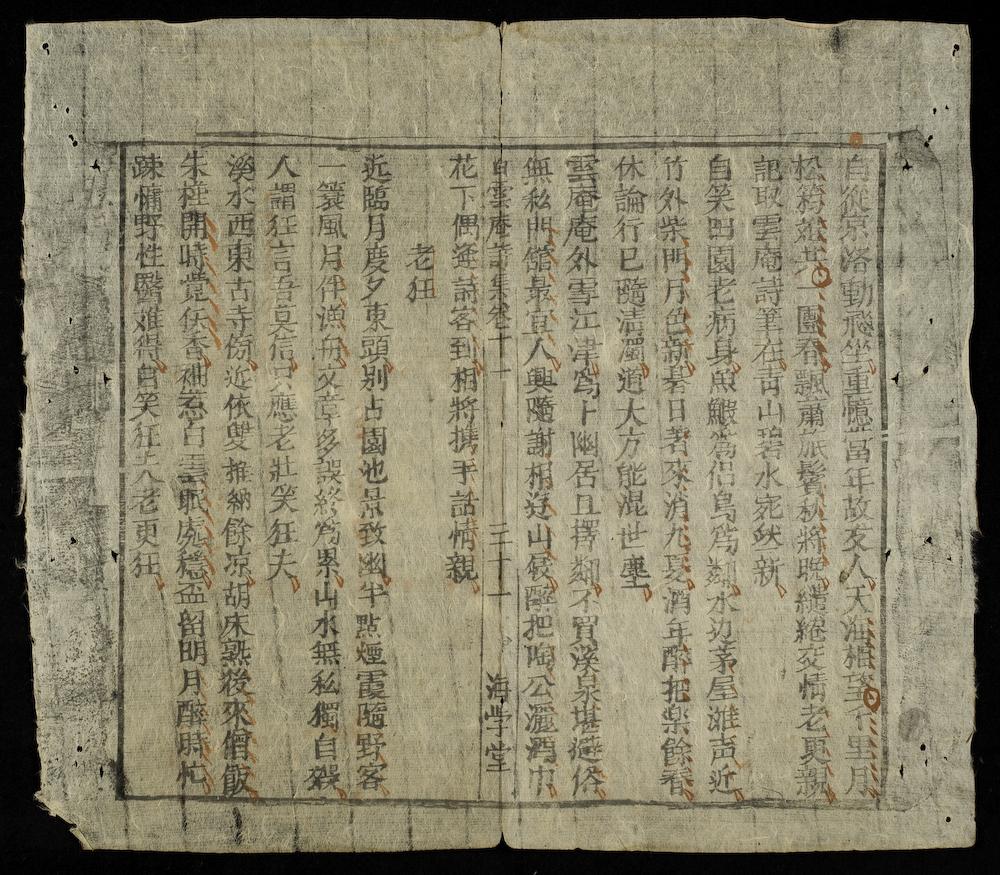 自從京洛動飛塵重憶當年故友人天海相望千里月
松筠一團春飄蕭旅鬢秋將晚繾綣交情老更親
記取雲庵詩筆在靑山碧水宛然新
自笑田園老病身魚鰕爲侶鳥爲鄰水边茅屋灘声近
竹外柴門月色新暑日著來消九夏酒年醉把楽餘春
休論行已隨淸濁道大方能混世塵
雲庵庵外雪江津爲卜幽居且擇鄰不買溪泉堪避俗
無私門舘最宜人興隨謝相逰山屐醉把陶公灑酒巾
白雲庵詩集卷十一 三十一 海学堂
花下偶逢詩客到相將携手話情親
老狂
近臨月度夕東頭别占園池景致幽半點煙霞隨野客
一簑風月伴漁舟文章多誤終爲累山水無私獨自
人謂狂言吾莫信只應老壯笑狂夫
溪水西東古寺傍近依雙納餘凉胡床熟後來僧飯
朱桂開時覺佚香袖惹白雲眠處穩盃留明月醉時忙
踈慵野性醫难得自笑狂夫老更狂